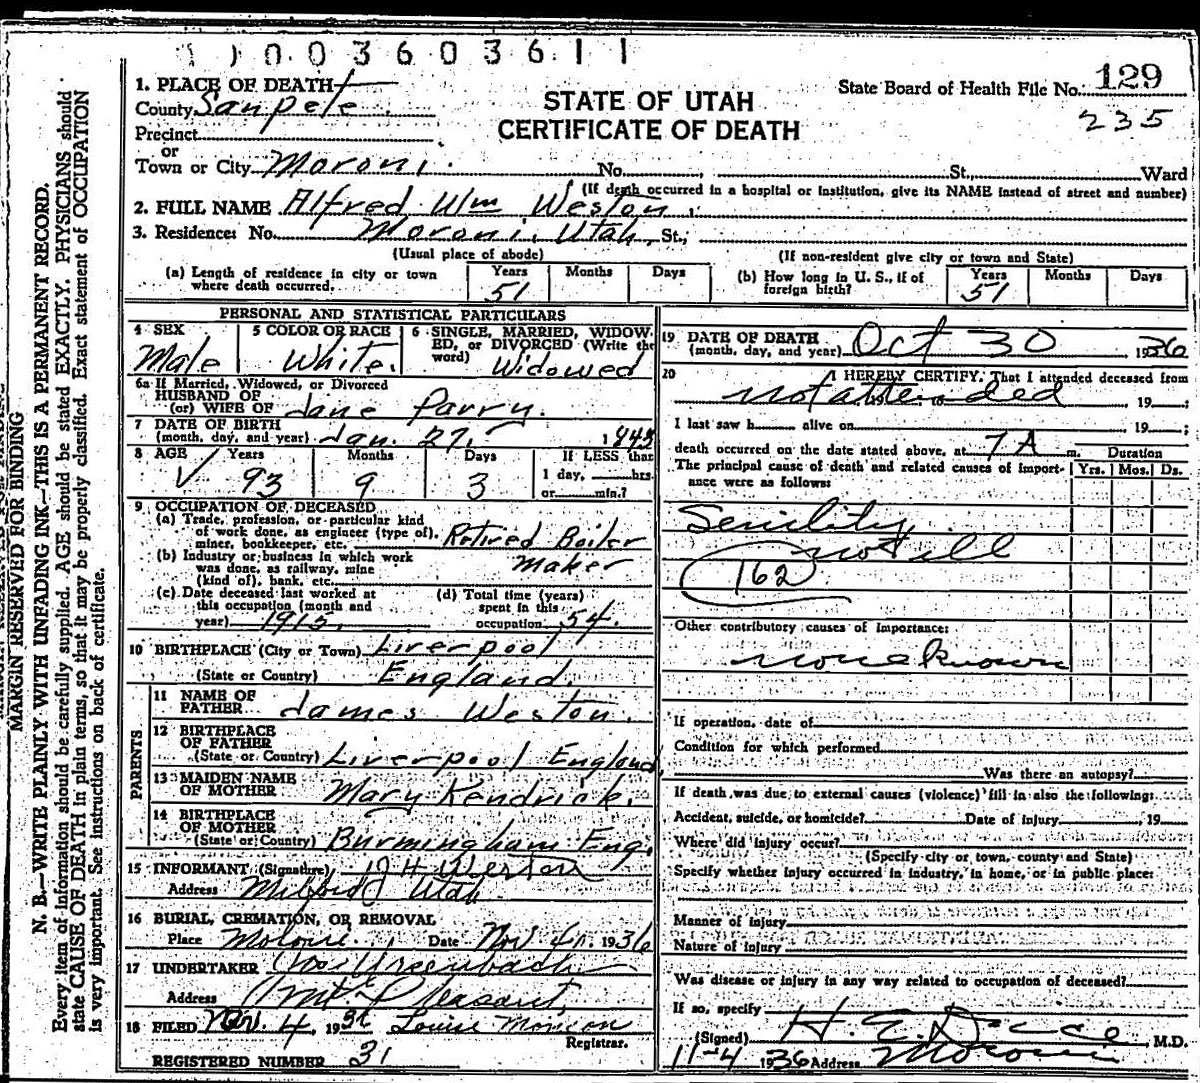 1 0 0 3 6 0 3 6 1 1
1. PLACE OF DEATH
County Sanpete
Precinct
or
Town or City Moroni. No. St., Ward
(If death occurred in a hospital or institution, give its NAME instead of street and number)
State Board of Health File No. 129
235
STATE OF UTAH
CERTIFICATE OF DEATH
2. FULL NAME Alfred Wm Weston
3. Residence: No. Moroni, Utah, St.,
(Usual place of abode) (If non-resident give city or town and State)
(a) Length of residence in city or town where death occurred. Years 51 Months Days
(b) How long in U. S., if of foreign birth? Years 51 Months Days
PERSONAL AND STATISTICAL PARTICULARS
4 SEX Male
5 COLOR OR RACE White.
6 SINGLE, MARRIED, WIDOWED, or DIVORCED (Write the word) Widowed
6a If Married, Widowed, or Divorced
HUSBAND OF
(or) WIFE OF Jane Parry.
7 DATE OF BIRTH
(month, day, and year) Jan. 27. 1843
8 AGE Years 93 Months 9 Days 3 If LESS than 1 day, hrs. or min.?
9 OCCUPATION OF DECEASED
(a) Trade, profession, or particular kind of work done, as engineer (type of), miner, bookkeeper, etc. Retired Boiler Maker
(b) Industry or business in which work was done, as railway, mine (kind of), bank, etc.
(c) Date deceased last worked at this occupation (month and year) 1915.
(d) Total time (years) spent in this occupation 54.
10 BIRTHPLACE (City or Town) Liverpool
(State or Country) England.
PARENTS
11 NAME OF FATHER James Weston.
12 BIRTHPLACE OF FATHER
(State or Country) Liverpool England
13 MAIDEN NAME OF MOTHER Mary Kendrick.
14 BIRTHPLACE OF MOTHER
(State or Country) Burmingham Eng.
15 INFORMANT (Signature) J H Weston
Address Milford Utah
16 BURIAL, CREMATION, OR REMOVAL
Place Moroni. Date Nov 4th 1936
17 UNDERTAKER
Address Mt Pleasant,
18 FILED Nov. 4, 1936 Louise Morison
Registrar.
REGISTERED NUMBER 31
19 DATE OF DEATH
(month, day, and year) Oct 30 1936
20 I HEREBY CERTIFY, That I attended deceased from
not attended 19 ;
I last saw h alive on 19 ;
death occurred on the date stated above, at 7 A m. Duration
The principal cause of death and related causes of importance were as follows: Yrs. Mos. Ds.
Senility
not ill
162
Other contributory causes of importance:
none known
If operation, date of
Condition for which performed
Was there an autopsy?
If death was due to external causes (violence) fill in also the following:
Accident, suicide, or homicide? Date of injury, 19
Where did injury occur?
(Specify city or town, county and State)
Specify whether injury occurred in industry, in home, or in public place:
Manner of injury
Nature of injury
Was disease or injury in any way related to occupation of deceased?
If so, specify
(Signed) H. E. M.D.
11-4 1936 Address Moroni
MARGIN RESERVED FOR BINDING
N. B.—WRITE PLAINLY WITH UNFADING INK—THIS IS A PERMANENT RECORD.
Every item of information should be carefully supplied. AGE should be stated EXACTLY. PHYSICIANS should
state CAUSE OF DEATH in plain terms, so that it may be properly classified. Exact statement of OCCUPATION
is very important. See instructions on back of certificate.